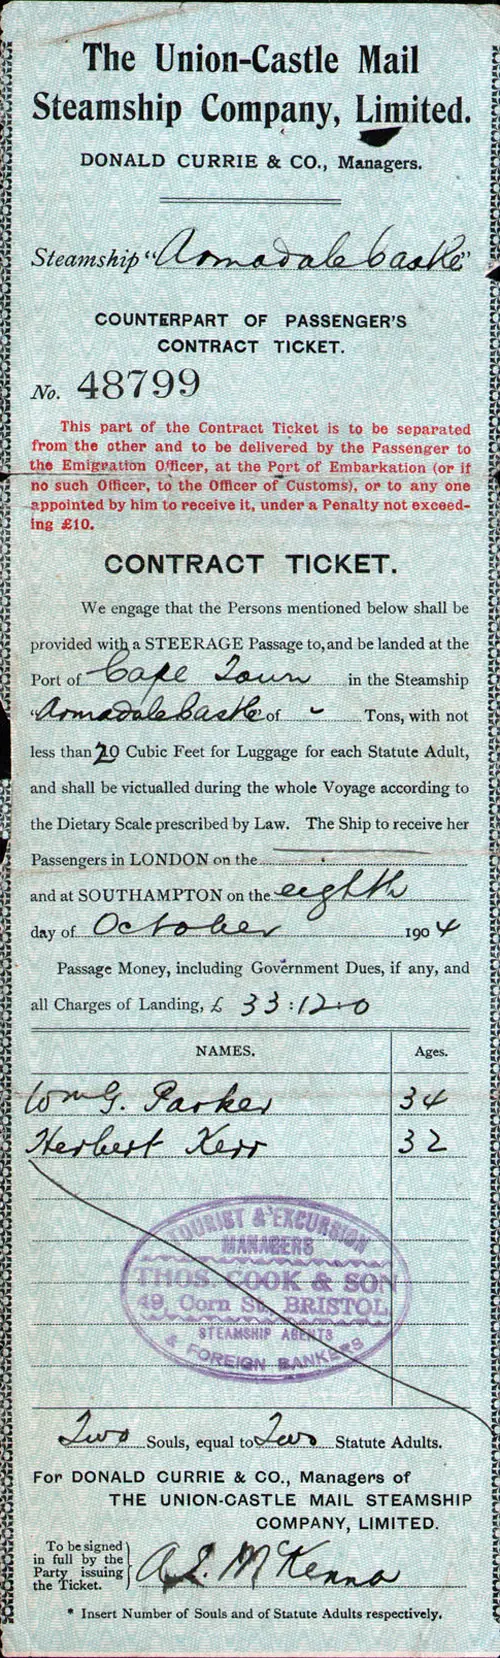 The Union-Castle Mail
Steamship Company, Limited.
DONALD CURRIE & CO., Managers.
Steamship "Armadale Castle"
COUNTERPART OF PASSENGER'S
CONTRACT TICKET.
No. 48799
This part of the Contract Ticket is to be separated
from the other and to be delivered by the Passenger to
the Emigration Officer, at the Port of Embarkation (or if
no such Officer, to the Officer of Customs), or to any one
appointed by him to receive it, under a Penalty not exceed-
ing £10.
CONTRACT TICKET.
We engage that the Persons mentioned below shall be
provided with a STEERAGE Passage to, and be landed at the
Port of Cape Town in the Steamship
"Armadale Castle" of - Tons, with not
less than 20 Cubic Feet for Luggage for each Statute Adult,
and shall be victualled during the whole Voyage according to
the Dietary Scale prescribed by Law. The Ship to receive her
Passengers in LONDON on the
and at SOUTHAMPTON on the eighth
day of October 1904
Passage Money, including Government Dues, if any, and
all Charges of Landing, £ 33:12:0
NAMES. Ages.
Wm G. Parker 34
Herbert Kerr 32
TOURIST & EXCURSION
MANAGERS
THOS. COOK & SON
49, Corn St. BRISTOL
STEAMSHIP AGENTS
& FOREIGN BANKERS
Two Souls, equal to Two Statute Adults.
For DONALD CURRIE & CO., Managers of
THE UNION-CASTLE MAIL STEAMSHIP
COMPANY, LIMITED.
To be signed
in full by the
Party issuing
the Ticket.
A McKenna
* Insert Number of Souls and of Statute Adults respectively.